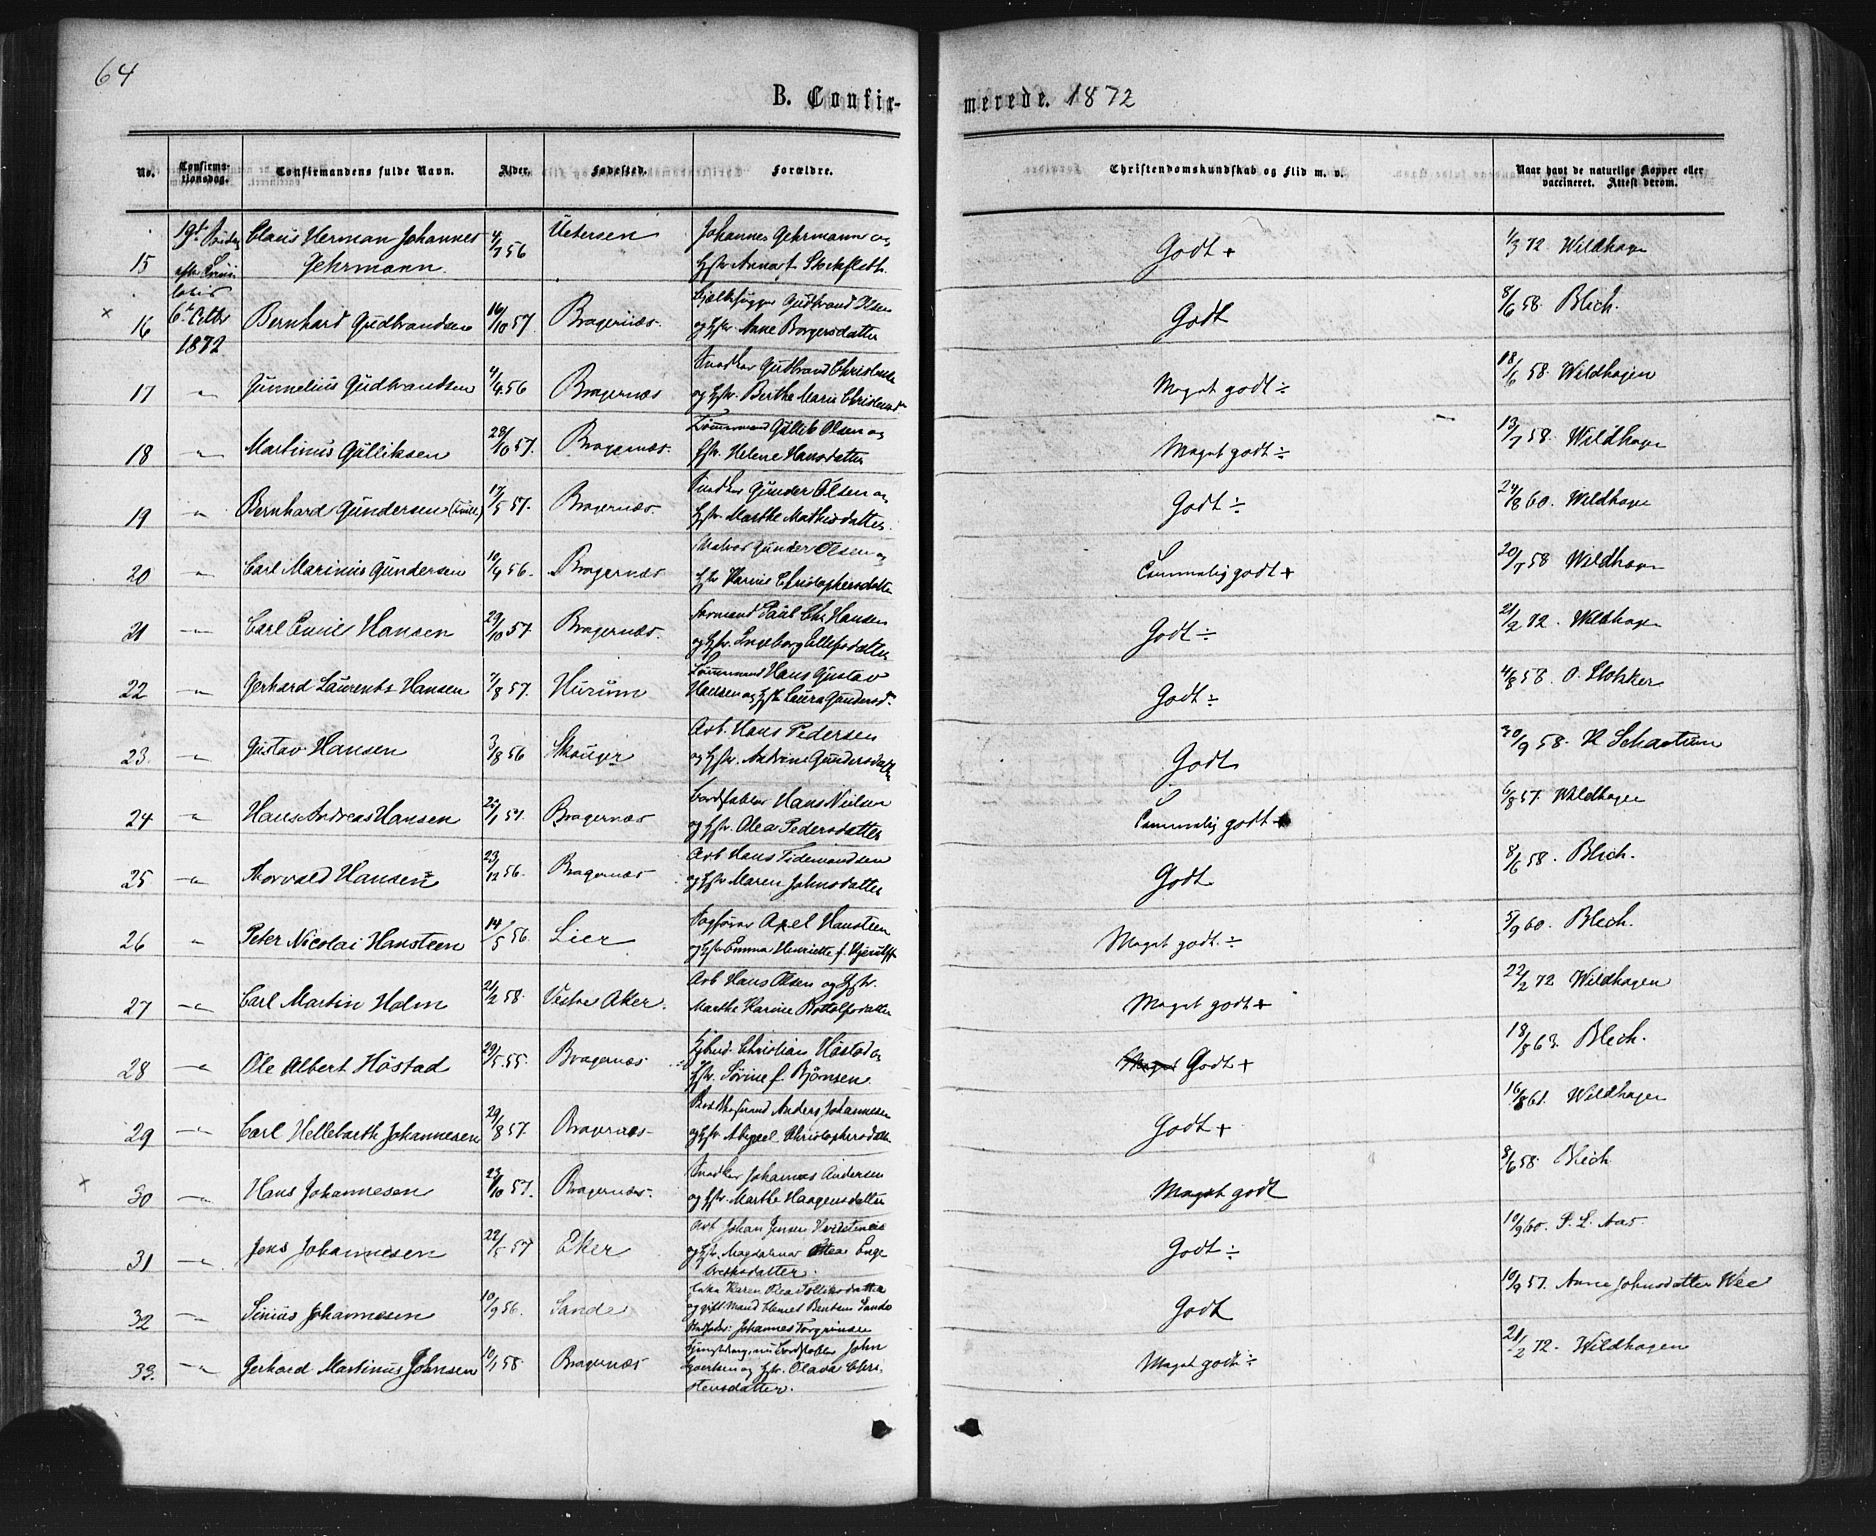 64
B. Confir-
merede. 1872
No. Confirmationsdag. Confirmandens fulde Navn. Alder. Fødested. Forældre. Christendomskundskab og Flid m. v. Naar havt de naturlige Kopper eller vaccineret. Attest derom.
15 19de Claus Herman Johannes Gehrmann 4/7 56 Uetersen Johannes Gehrmann og Hstr Anna f. Stockfleth. Godt + 1/3 72 Wildhagen
16 6te Octbr 1872 Bernhard Gudbrandsen 16/10 57 Bragernæs. Gudbrand Olsen og Hstr. Anne Borgersdatter Godt 8/6 58. Blich.
17 " Gunnelius Gudbrandsen 4/9 56 Bragernæs Snedker Gudbrand og Hstr. Berthe Marie Godt Meget godt ÷ 18/6 58. Wildhagen
18 " Martinus Gulliksen 28/10 57. Bragernæs. Tømmermand Gullik Olsen og Hstr. Helene Hansdatter Meget godt ÷ 13/7 58. Wildhagen
19 " Bernhard Gundersen (Tvill.) 17/5 57. Bragernæs. Snedker Gunder Olsen og Hstr. Marthe Mathisdatter. Godt ÷ 24/8 60. Wildhagen
20 " Carl Marinius Gundersen 10/9 56. Bragernæs Gunder Olsen og Hstr Karine Christophersdatter Temmelig godt + 20/7 58 Wildhagen
21 " Carl Emil Hansen 29/10 57 Bragernæs. Formand Paul Chr. Hansen og Hstr. Ingeborg Ellefsdatter Godt ÷ 21/2 72. Wildhagen
22 " Gerhard Laurents Hansen 7/8 57. Hurum Tømmermand Hans Gustav Hansen og Hstr. Laura Gundersd. Godt ÷ 4/8 58. O. Stokker
23. " Gustav Hansen 3/8 56 Skouger Arb. Hans Pedersen og Hstr. Andrine Gundersdatter Godt 30/9 58.
24 " Hans Andreas Hansen Bragernæs Hans Nielsen og Hstr. Olea Pedersdatter Temmelig godt + 6/8 57. Wildhagen
25 " Thorvald Hansen 23/12 56. Bragernæs Arb Hans Tidemandsen og Hstr Maren Johnsdatter Godt 8/6 58. Blich.
26 " Peter Nicolai Hansteen 14/5 56. Lier Sagfører Axel Hansteen og Hstr Emma Henriette f. Kjerulff Meget godt ÷ 5/9 60. Blich.
27 " Carl Martin Holm 21/2 58. Vestre Aker. Arb Hans Olsen og Hstr. Marthe Karine Bottolfsdatter Meget godt + 22/2 72 Wildhagen
28 " Ole Albert Höstad 29/5 55. Bragernæs Christian Höstad og Hstr. Sørine f. Bjønsen. Meget Godt + 18/8 63. Blich.
29 " Carl Hellebarth Johannesen 29/8 57. Bragernæs Anders Johannesen og Hstr. Abigael Christophersdatter Godt + 16/8 61. Wildhagen
30 " Hans Johannesen 23/10 57. Bragernæs. Snedker Johannes Andersen og Hstr. Marthe Haagensdatter Meget godt 8/6 58. Blich
31 " Jens Johannesen 22/5 57 Eker Arb Johan Jensen og Hstr. Magdalena Ottea Engebretsdatter. Godt ÷ 10/9 60. P. L. Aas.
32 " Sinius Johannesen 10/9 56. Sande Enke Karen Olea og gift Mand Sande Johannes Torgrimsen Godt 10/9 57. Anne Johnsdatter Wee
33. " Gerhard Martinus Johnsen 10/1 58. Bragernæs John og Hstr. Olava Christensdatter. Meget godt ÷ 21/2 72. Wildhagen